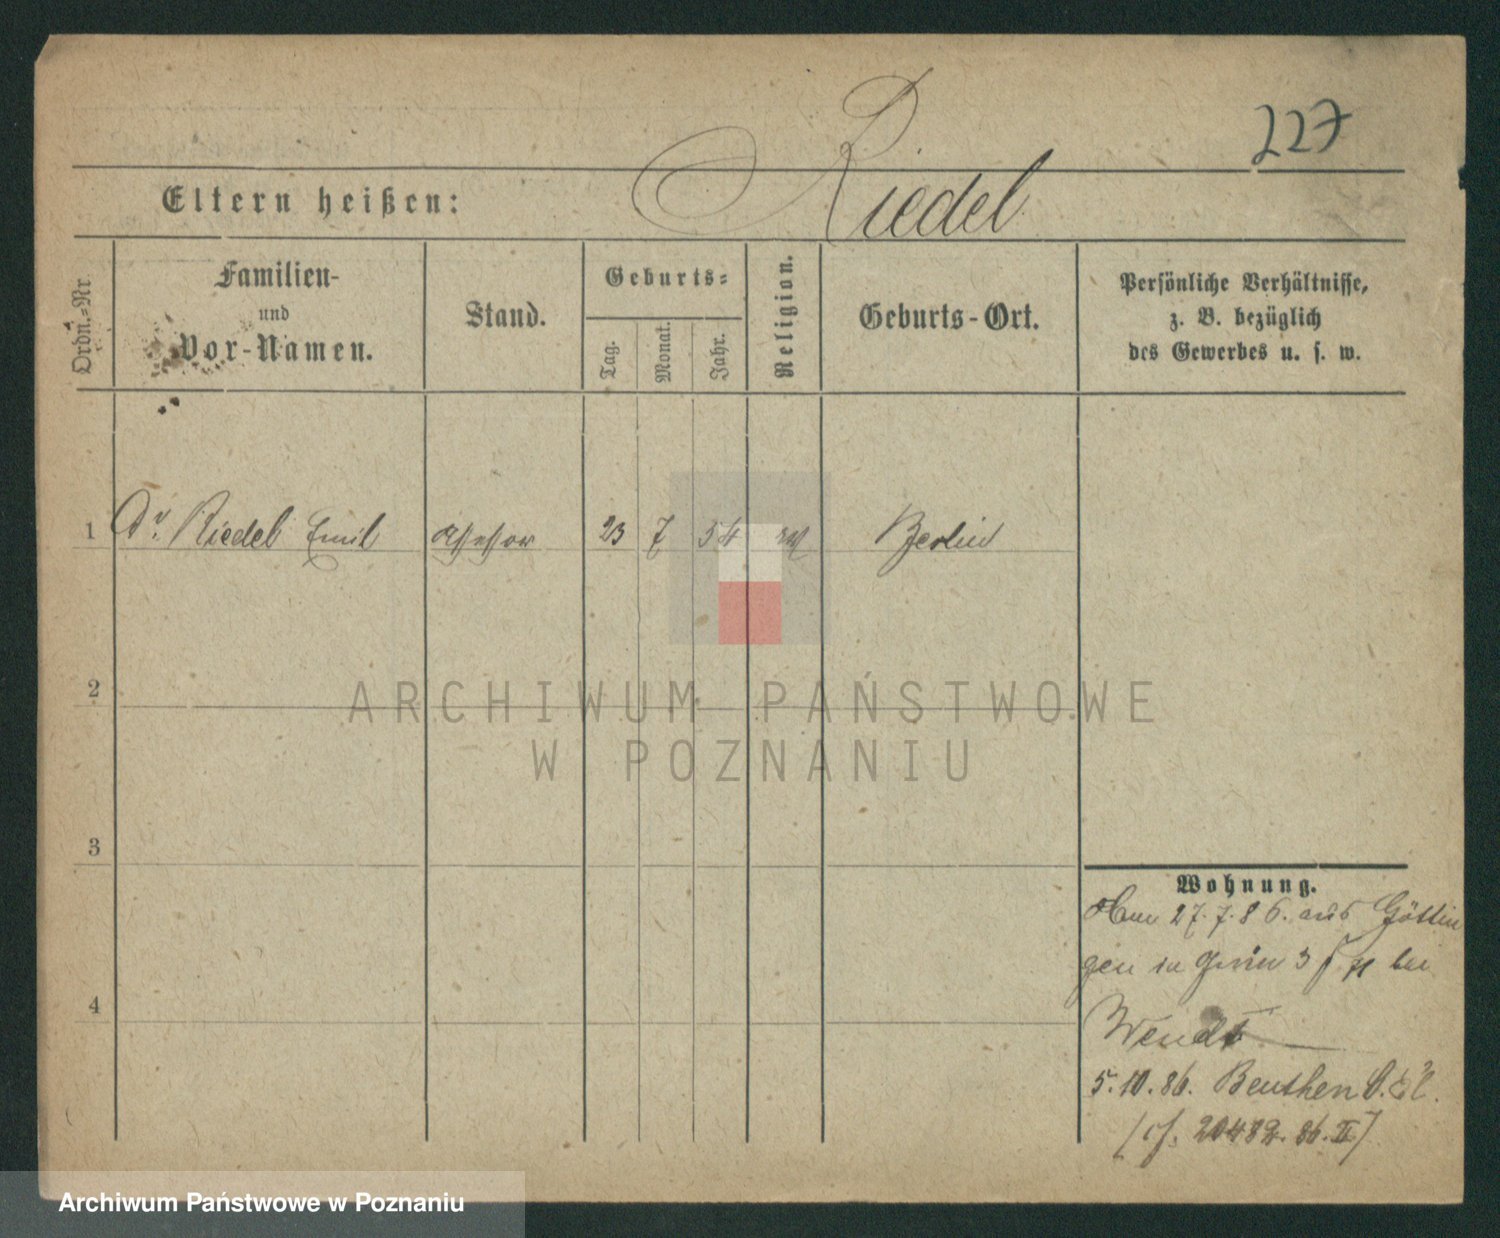 227
Riedel
Eltern heißen:
Ordn.-Nr
Familien-
und
Vor-Namen.
Stand.
Geburts-
Tag.
Monat.
Jahr.
Religion.
Geburts-Ort.
Persönliche Verhältnisse,
z. B. bezüglich
des Gewerbes u. s. w.
1 Dr. Riedel Emil Assessor 23 7 54 Berlin
2
3
4
Wohnung.
27.7.86. aus Göttin
gen in 3 bei
Wendt
5.10.86. Beuthen
ARCHIWUM PAŃSTWOWE
W POZNANIU
Archiwum Państwowe w Poznaniu